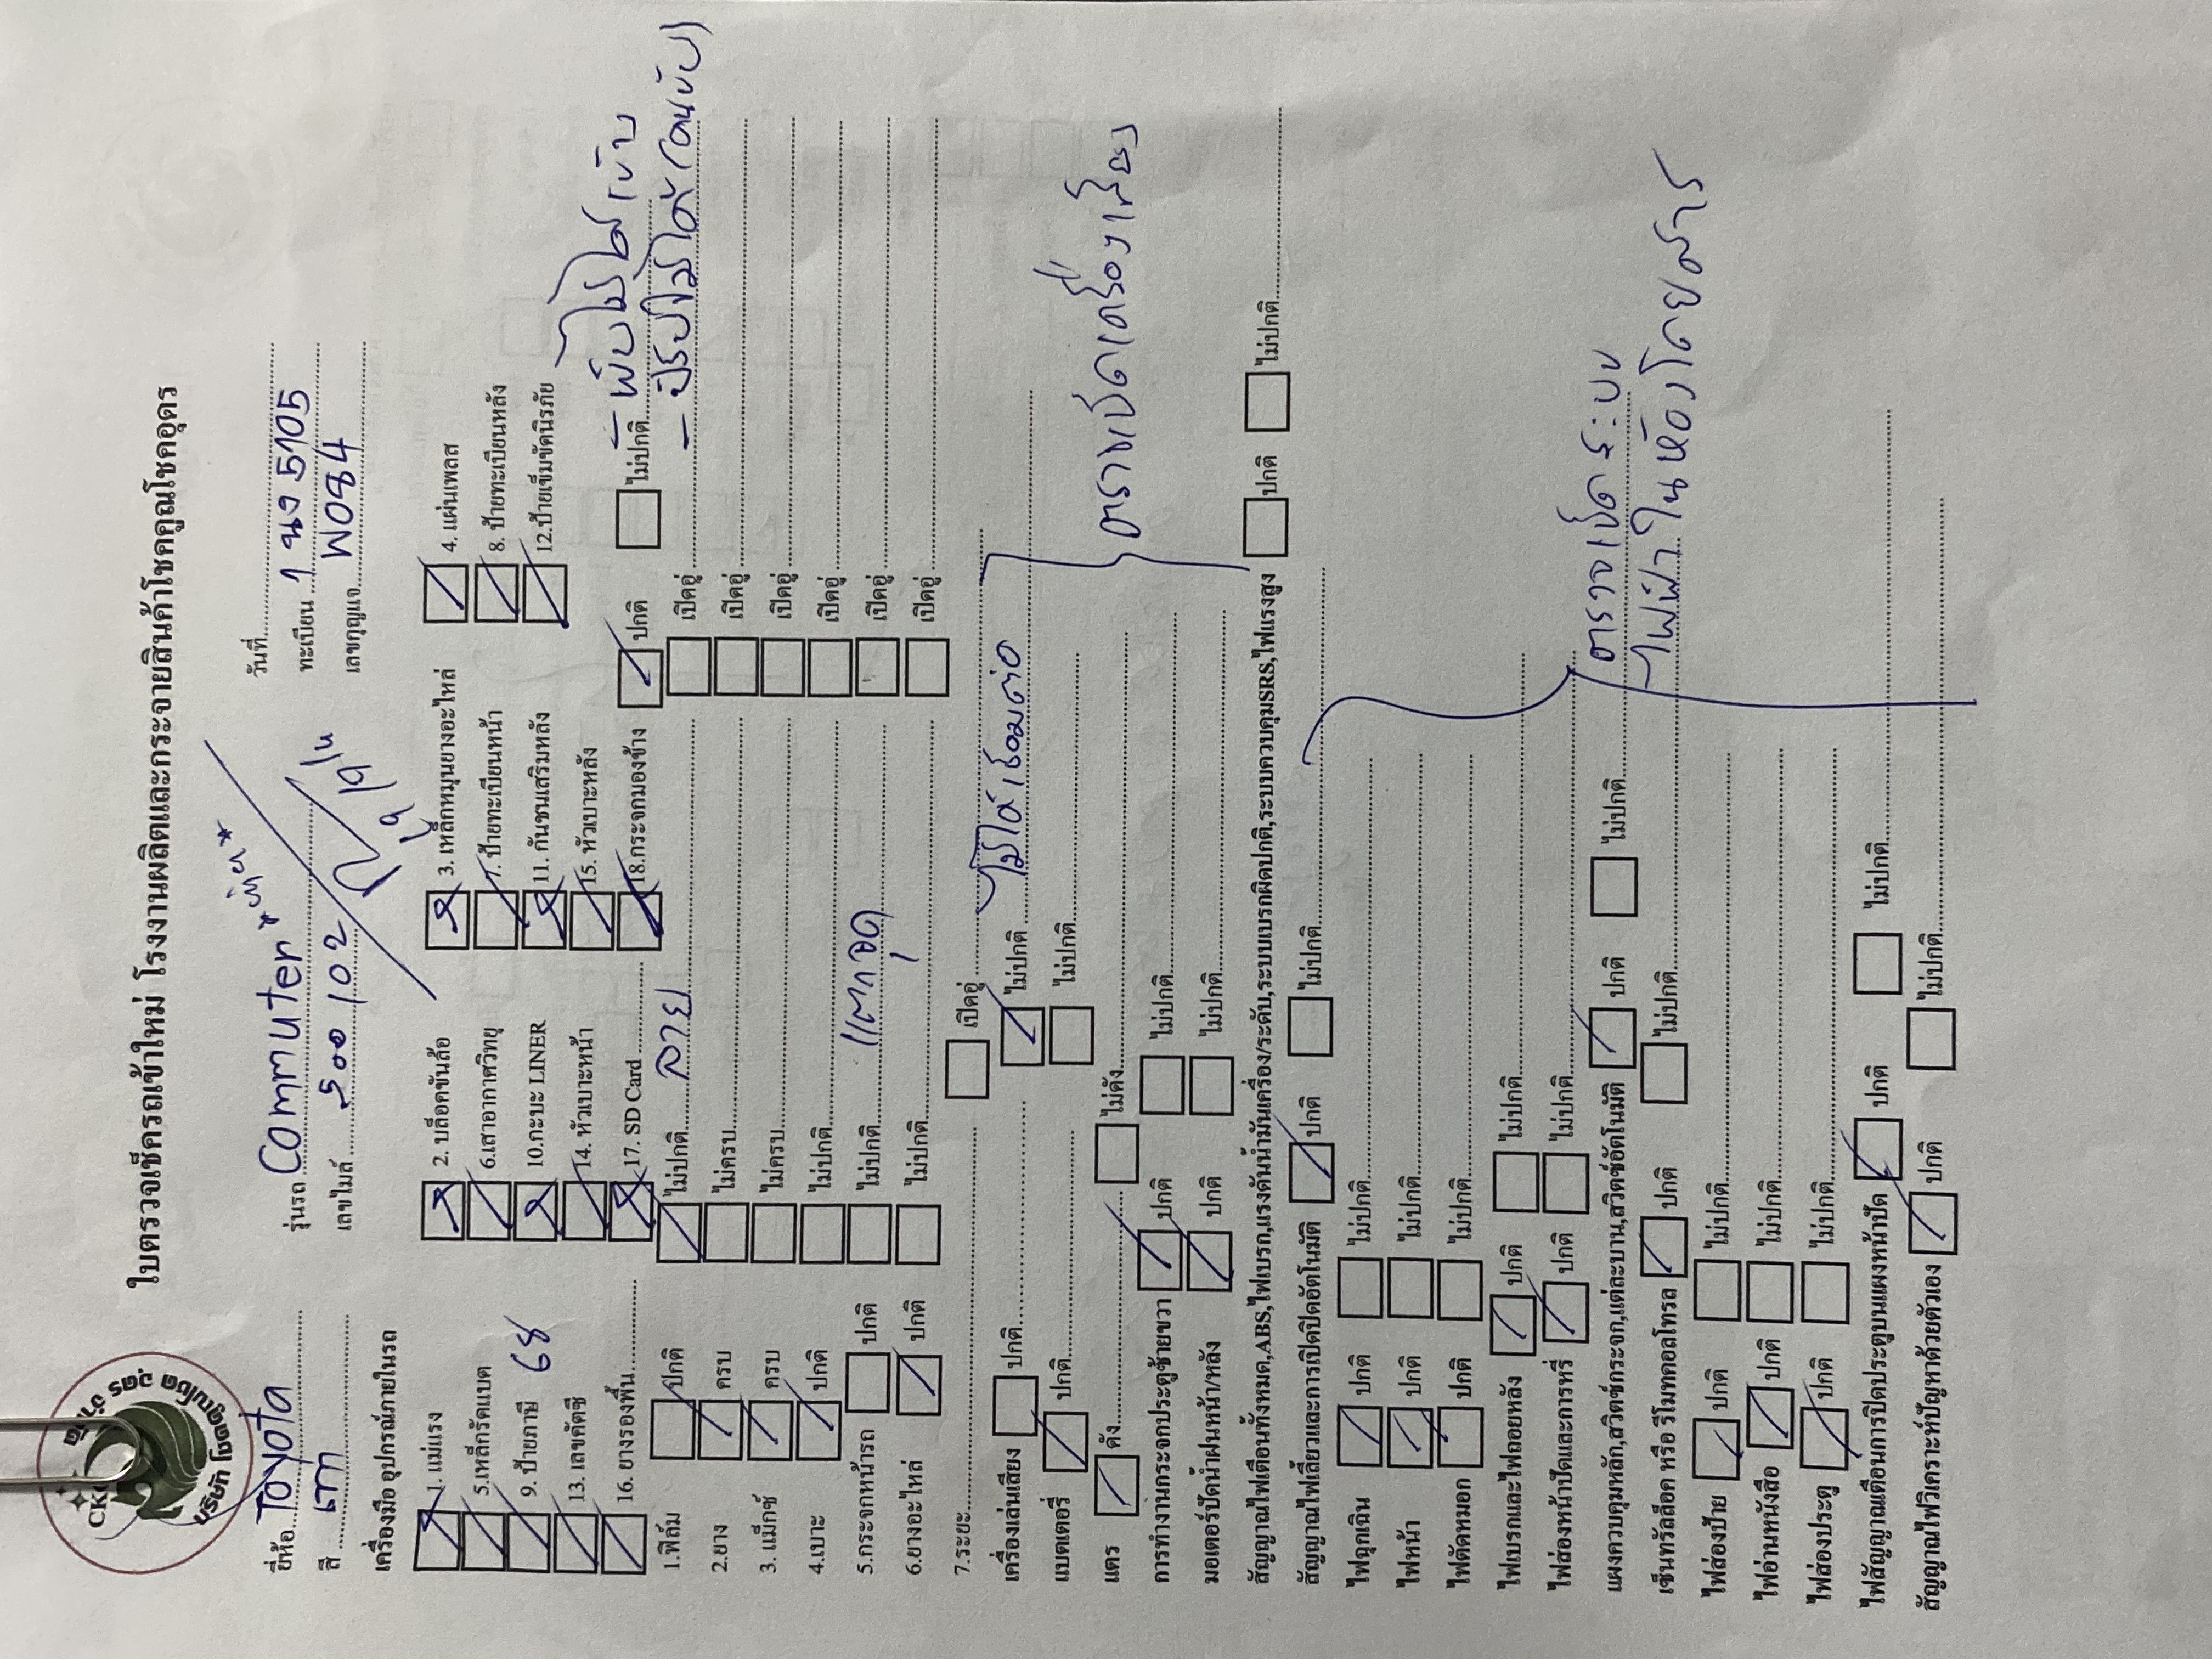 ใบตรวจเช็ครถเข้าใหม่ โรงงานผลิตและกระจายสินค้าโชคคูณโชคอุดร
ยี่ห้อ Toyota รุ่นรถ Commuter วันที่
สี เทา เลขไมล์ 500 102 ทะเบียน 1 นง 5705
เลขกุญแจ W084
เครื่องมือ อุปกรณ์ภายในรถ
1. แม่แรง 2. บล็อคขันล้อ 3. เหล็กหมุนยางอะไหล่ 4. แผ่นเพลส
5.เหล็กรัดแบต 6.เสาอากาศวิทยุ 7. ป้ายทะเบียนหน้า 8. ป้ายทะเบียนหลัง
9. ป้ายภาษี 68 10.กะบะ LINER 11. กันชนเสริมหลัง 12.ป้ายเข็มขัดนิรภัย
13. เลขคัตซี 14. หัวเบาะหน้า 15. หัวเบาะหลัง
16. ยางรองพื้น 17. SD Card 18.กระจกมองข้าง ปกติ ไม่ปกติ - พับไม่ได้
1.ฟิล์ม ปกติ ไม่ปกติ ลาย เปิดอู่ - ปรับไม่ได้ (คนขับ)
2.ยาง ครบ ไม่ครบ เปิดอู่
3. แม็กซ์ ครบ ไม่ครบ เปิดอู่
4.เบาะ ปกติ ไม่ปกติ เปิดอู่
5.กระจกหน้ารถ ปกติ ไม่ปกติ แตกจุด เปิดอู่
6.ยางอะไหล่ ปกติ ไม่ปกติ เปิดอู่
7.ระยะ: เปิดอู่
เครื่องเล่นเสียง ปกติ ไม่ปกติ ไม่ได้เชื่อมต่อ
แบตเตอรี่ ปกติ ไม่ปกติ
แตร ดัง ไม่ดัง ตรวจเช็คเครื่องเสียง
การทำงานกระจกประตูซ้ายขวา ปกติ ไม่ปกติ
มอเตอร์ปัดน้ำฝนหน้า/หลัง ปกติ ไม่ปกติ
สัญญาณไฟเตือนทั้งหมด,ABS,ไฟเบรก,แรงดันน้ำมันเครื่อง/ระดับ,ระบบเบรกผิดปกติ,ระบบควบคุมSRS,ไฟแรงสูง ปกติ ไม่ปกติ
สัญญาณไฟเลี้ยวและการเปิดปิดอัตโนมัติ ปกติ ไม่ปกติ
ไฟฉุกเฉิน ปกติ ไม่ปกติ
ไฟหน้า ปกติ ไม่ปกติ
ไฟตัดหมอก ปกติ ไม่ปกติ
ไฟเบรกและไฟถอยหลัง ปกติ ไม่ปกติ
ไฟส่องหน้าปัดและการหรี่ ปกติ ไม่ปกติ
แผงควบคุมหลัก,สวิตช์กระจก,แต่ละบาน,สวิตช์อัตโนมัติ ปกติ ไม่ปกติ ตรวจเช็คระบบ
เซ็นทรัลล็อค หรือ รีโมทคอลโทรล ปกติ ไม่ปกติ ไฟฟ้าในห้องโดยสาร
ไฟส่องป้าย ปกติ ไม่ปกติ
ไฟอ่านหนังสือ ปกติ ไม่ปกติ
ไฟส่องประตู ปกติ ไม่ปกติ
ไฟสัญญาณเตือนการปิดประตูบนแผงหน้าปัด ปกติ ไม่ปกติ
สัญญาณไฟวิเคราะห์ปัญหาด้วยตัวเอง ปกติ ไม่ปกติ